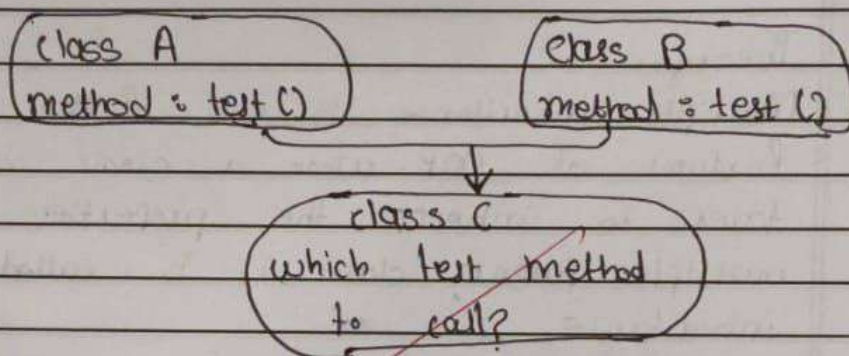 class A
method : test ()
class B
method : test ()
class C
which test method
to call?